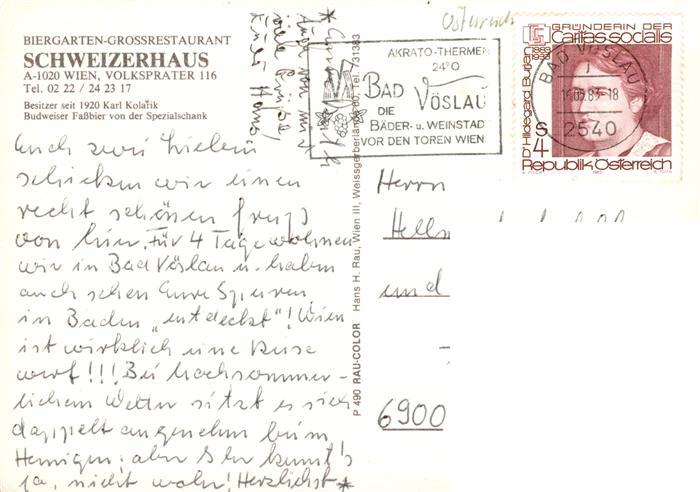 Österreich
BIERGARTEN-GROSSRESTAURANT
SCHWEIZERHAUS
A-1020 WIEN, VOLKSPRATER 116
Tel. 02 22 / 24 23 17
Besitzer seit 1920 Karl Kolařik
Budweiser Faßbier von der Spezialschank
Euch zwei Lieben
schicken wir einen
recht schönen Gruß
von hier. Für 4 Tage wohnen
wir in Bad Vöslau u. haben
auch schon Eure Spuren
in Baden „entdeckt"! Wien
ist wirklich eine Reise
wert!!! Bei hochsommer-
lichem Wetter sitzt es sich
doppelt angenehm beim
Heurigen: aber Ihr kennt's
ja, nicht wahr! Herzlichst *
*
Auch von mir
viele Grüße,
AKRATO-THERMEN
24°O
BAD VÖSLAU
DIE
BÄDER- u. WEINSTADT
VOR DEN TOREN WIENS
BAD VÖSLAU
2540
GRÜNDERIN DER
Caritas socialis
1883
1933
Dr Hildegard Burjan
S 4
Republik Österreich
P 490 RAU-COLOR Hans H. Rau, Wien III, Weissgerberlände 60, Tel. 731383
Herrn
und
6900